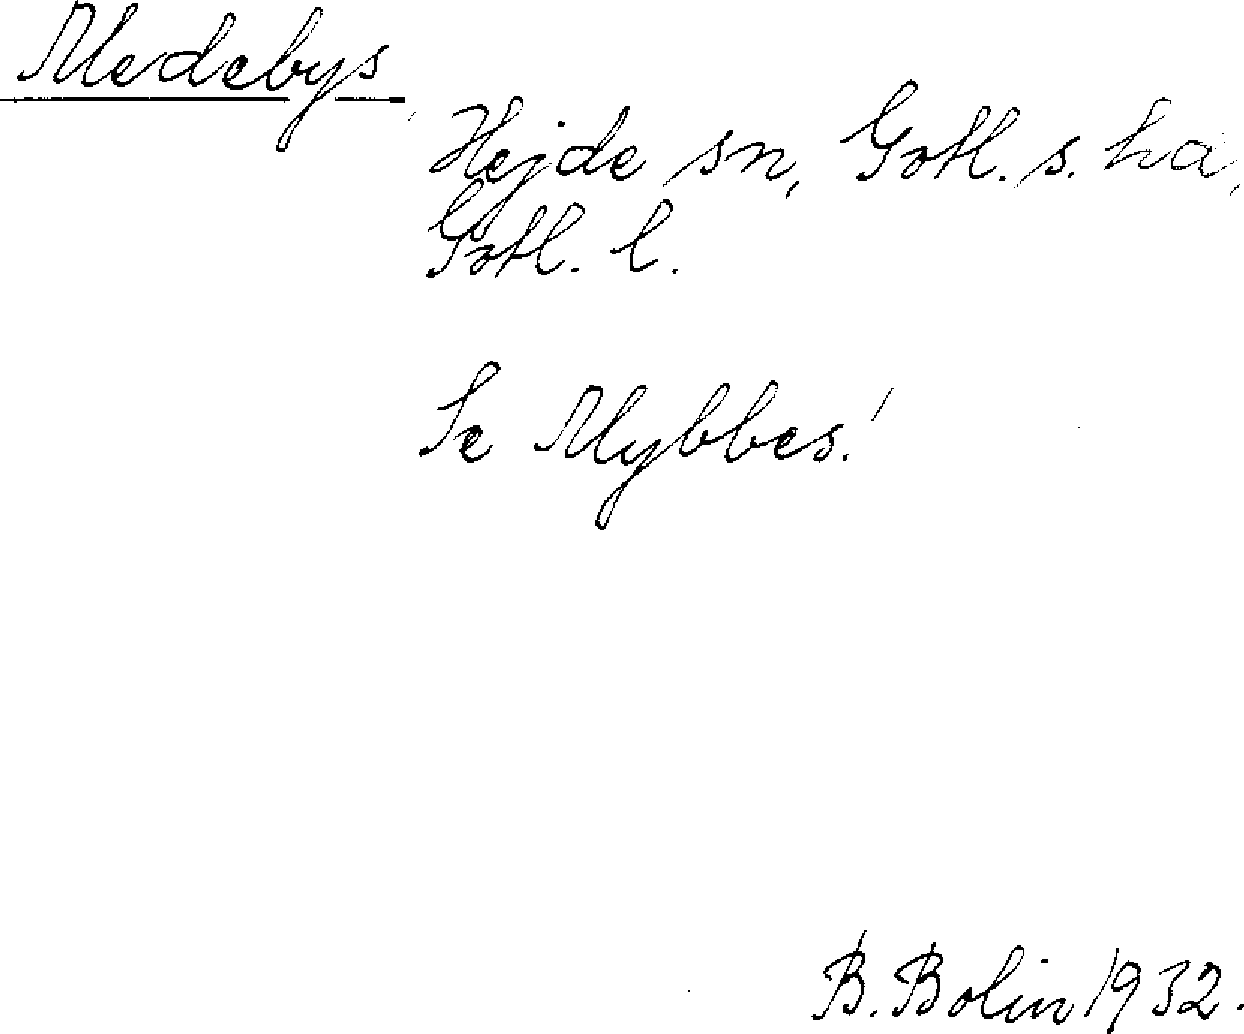 Medebys
Hejde sn, Gotl. s. hä,
Gotl. l.
Se Mybbes!
B. Bolin 1932.